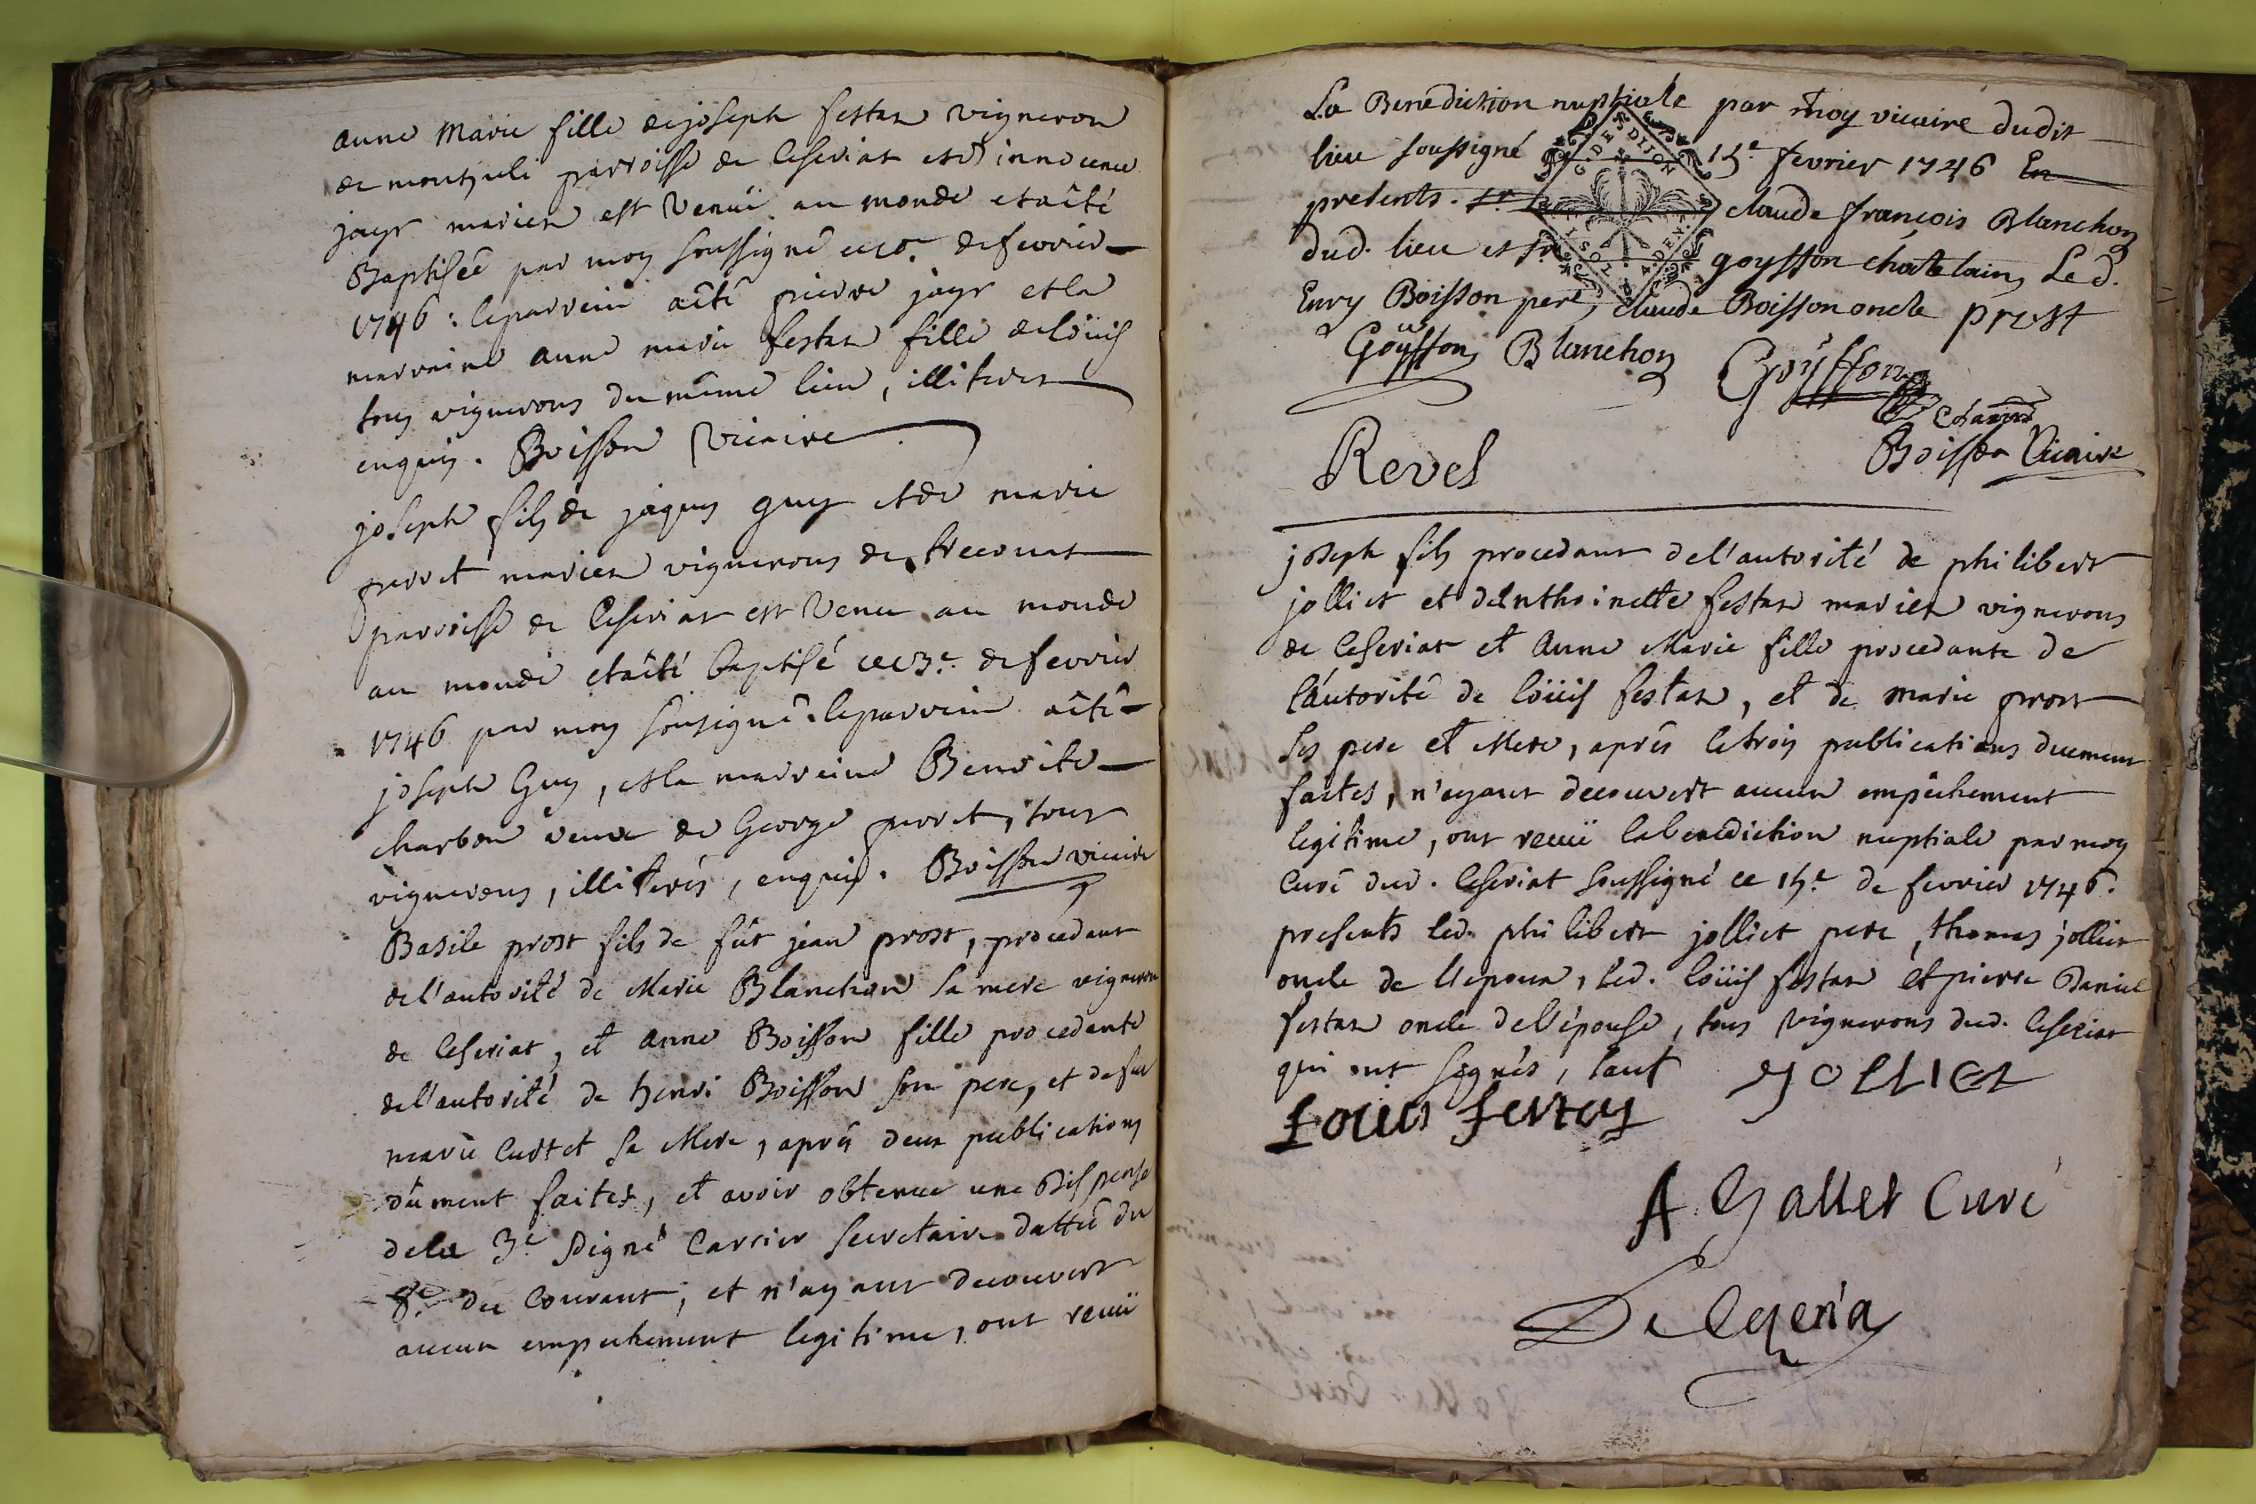 anne Marie fille de joseph festas vigneron
de montjuli parroisse de Ceseriat et d innocence
jayr mariés est venüe au monde et a êté
Baptisée par moy soussigné ce 10e de fevrier
1746 : le parrein a êté pierre jayr et la
marreine anne marie festas fille de Loüis
tous vignerons du même lieu, illiterés
enquis. Boisson Vicaire
joseph fils de jaques guy et de marie
perret mariés vignerons de
parroisse de Ceseriat est venu au monde
au monde et a êté baptisé ce 13e de fevrier
1746 par moy sousigné. le parrein a êté
joseph Guy, et la marreine Benoite
charbon veuve de George perret, tous
vignerons, illiterés, enquis. Boisson vicaire
Basile prost fils de fût jean prost, procedant
de l'autorité de Marie Blanchon sa mere vigneron
de Ceseriat, et anne Boisson fille procedante
de l'autorité de henri Boisson son pere, et de fue
marie Curtet sa Mere, aprés deux publications
dûment faites, et avoir obtenue une Dispense
de la 3e signé Carrier secretaire dattée du
8e du Courant, et n'ayant decouvert
aucun empechement legitime, ont reçuü
La Benediction nuptiale par moy vicaire dudit
lieu soussigné 15e fevrier 1746 En
presents. Sr claude françois Blanchon
dud. lieu et goyffon chatelain, Led.
Enry Boisson pere, claude Boisson oncle prost
Goÿffon Blanchon Goyffon
Boisson Vicaire
Revel
joseph fils procedant de l'autorité de philibert
jolliet et d'Anthoinette festas mariés vignerons
de Ceseriat et Anne Marie fille procedante de
l'autorité de loüis festas, et de marie prost
ses pere et Mere, aprés les trois publications duement
faites, n'ayant decouvert aucun empêchement
legitime, ont reçuü la benediction nuptiale par moy
Curé dud. Ceseriat soussigné ce 15e de fevrier 1746.
presents led. philibert jolliet pere, thomas jolliet
oncle de l'epoux, led. loüis festas et pierre Daniel
festas oncle de l'épouse, tous vignerons dud. Ceseriat
qui ont signés, sauf JOLLIET
Louis festas
A Gallet Curé
De Ceseria